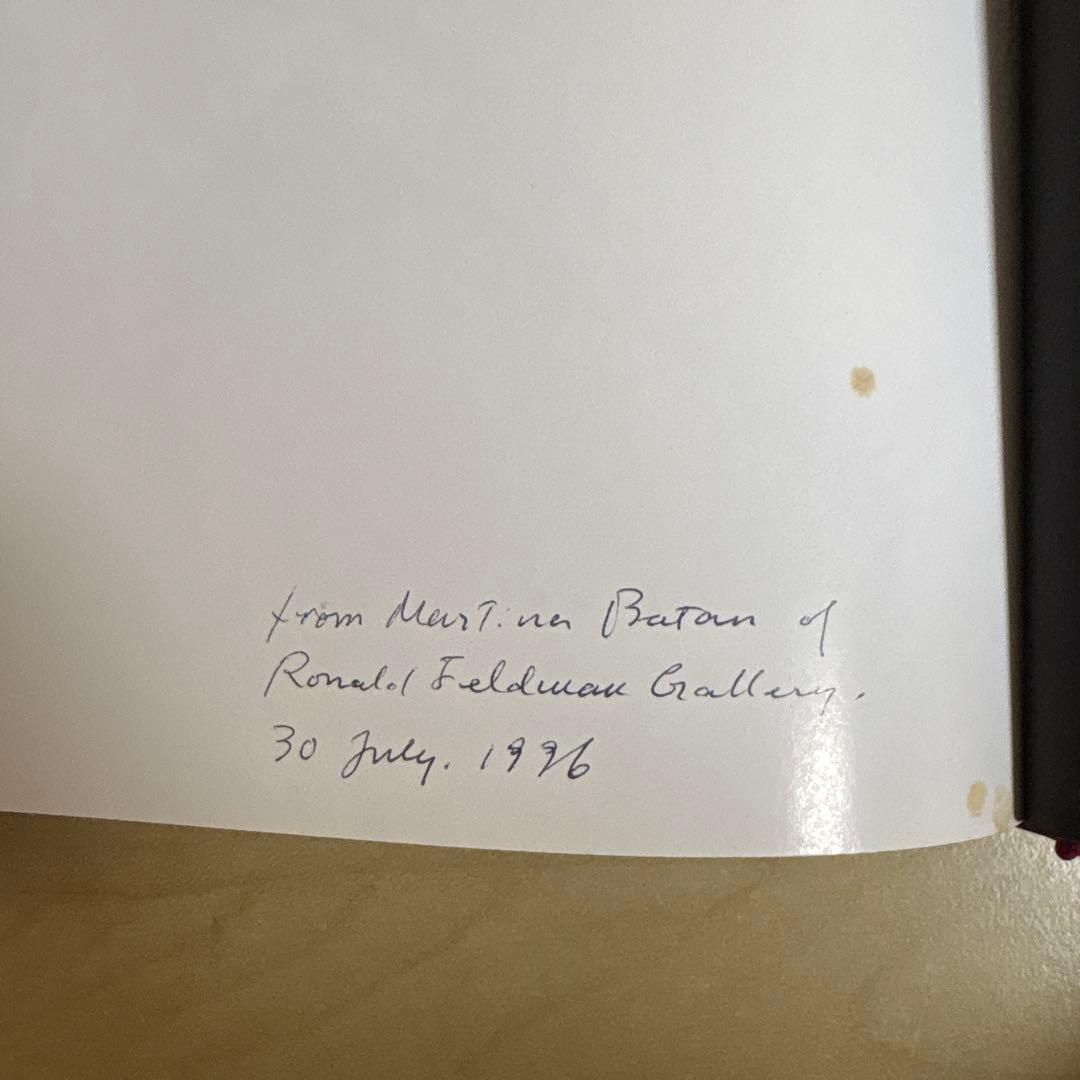 from Martina Batan of
Ronald Feldman Gallery.
30 July. 1996